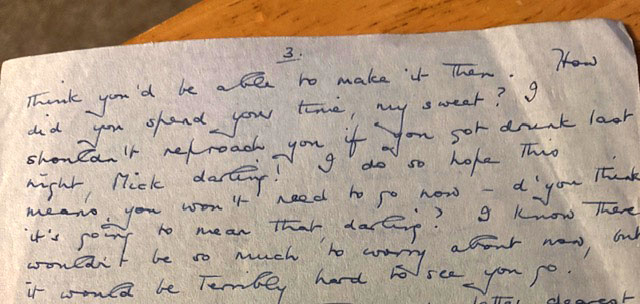 3.
think you'd be able to make it then. How
did you spend your time, my sweet? I
shouldn't reproach you if you got drunk last
night, Mick darling! I do so hope this
means you won't need to go now – d'you think
it's going to mean that, darling? I know there
wouldn't be so much to worry about now, but
it would be terribly hard to see you go.
letter dearest